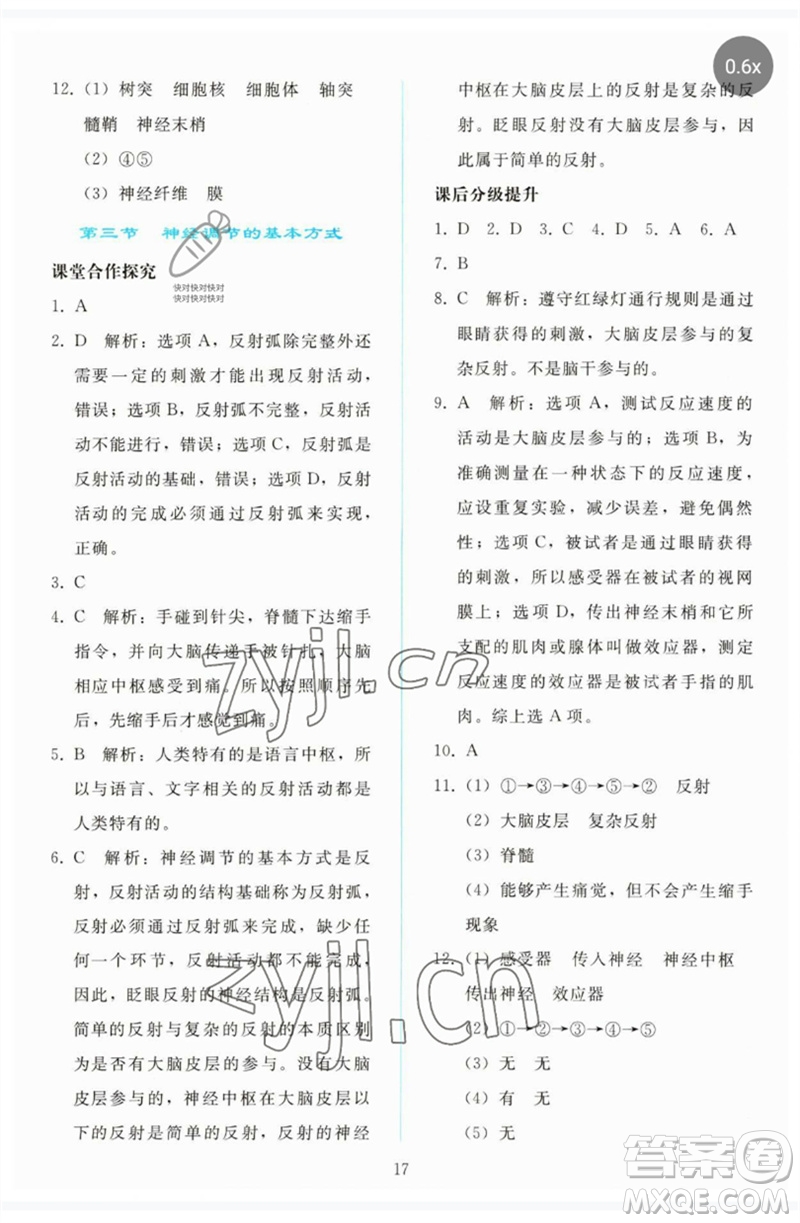 12. (1) 树突 细胞核 细胞体 轴突
髓鞘 神经末梢
(2) ④⑤
(3) 神经纤维 膜
第三节 神经调节的基本方式
快对快对快对快对
快对快对快对快对
课堂合作探究
1. A
2. D 解析：选项 A，反射弧除完整外还
需要一定的刺激才能出现反射活动，
错误；选项 B，反射弧不完整，反射活
动不能进行，错误；选项 C，反射弧是
反射活动的基础，错误；选项 D，反射
活动的完成必须通过反射弧来实现，
正确。
3. C
4. C 解析：手碰到针尖，脊髓下达缩手
指令，并向大脑传递手被针扎，大脑
相应中枢感受到痛。所以按照顺序先
后，先缩手后才感觉到痛。
5. B 解析：人类特有的是语言中枢，所
以与语言、文字相关的反射活动都是
人类特有的。
6. C 解析：神经调节的基本方式是反
射，反射活动的结构基础称为反射弧，
反射必须通过反射弧来完成，缺少任
何一个环节，反射活动都不能完成。
因此，眨眼反射的神经结构是反射弧。
简单的反射与复杂的反射的本质区别
为是否有大脑皮层的参与。没有大脑
皮层参与的，神经中枢在大脑皮层以
下的反射是简单的反射，反射的神经
0.6x
中枢在大脑皮层上的反射是复杂的反
射。眨眼反射没有大脑皮层参与，因
此属于简单的反射。
课后分级提升
1. D 2. D 3. C 4. D 5. A 6. A
7. B
8. C 解析：遵守红绿灯通行规则是通过
眼睛获得的刺激，大脑皮层参与的复
杂反射。不是脑干参与的。
9. A 解析：选项 A，测试反应速度的
活动是大脑皮层参与的；选项 B，为
准确测量在一种状态下的反应速度，
应设重复实验，减少误差，避免偶然
性；选项 C，被试者是通过眼睛获得
的刺激，所以感受器在被试者的视网
膜上；选项 D，传出神经末梢和它所
支配的肌肉或腺体叫做效应器，测定
反应速度的效应器是被试者手指的肌
肉。综上选 A 项。
10. A
11. (1) ①→③→④→⑤→② 反射
(2) 大脑皮层 复杂反射
(3) 脊髓
(4) 能够产生痛觉，但不会产生缩手
现象
12. (1) 感受器 传入神经 神经中枢
传出神经 效应器
(2) ①→②→③→④→⑤
(3) 无 无
(4) 有 无
(5) 无
zyjl.cn
zyjl.cn
17
答案圈
MXQE.COM